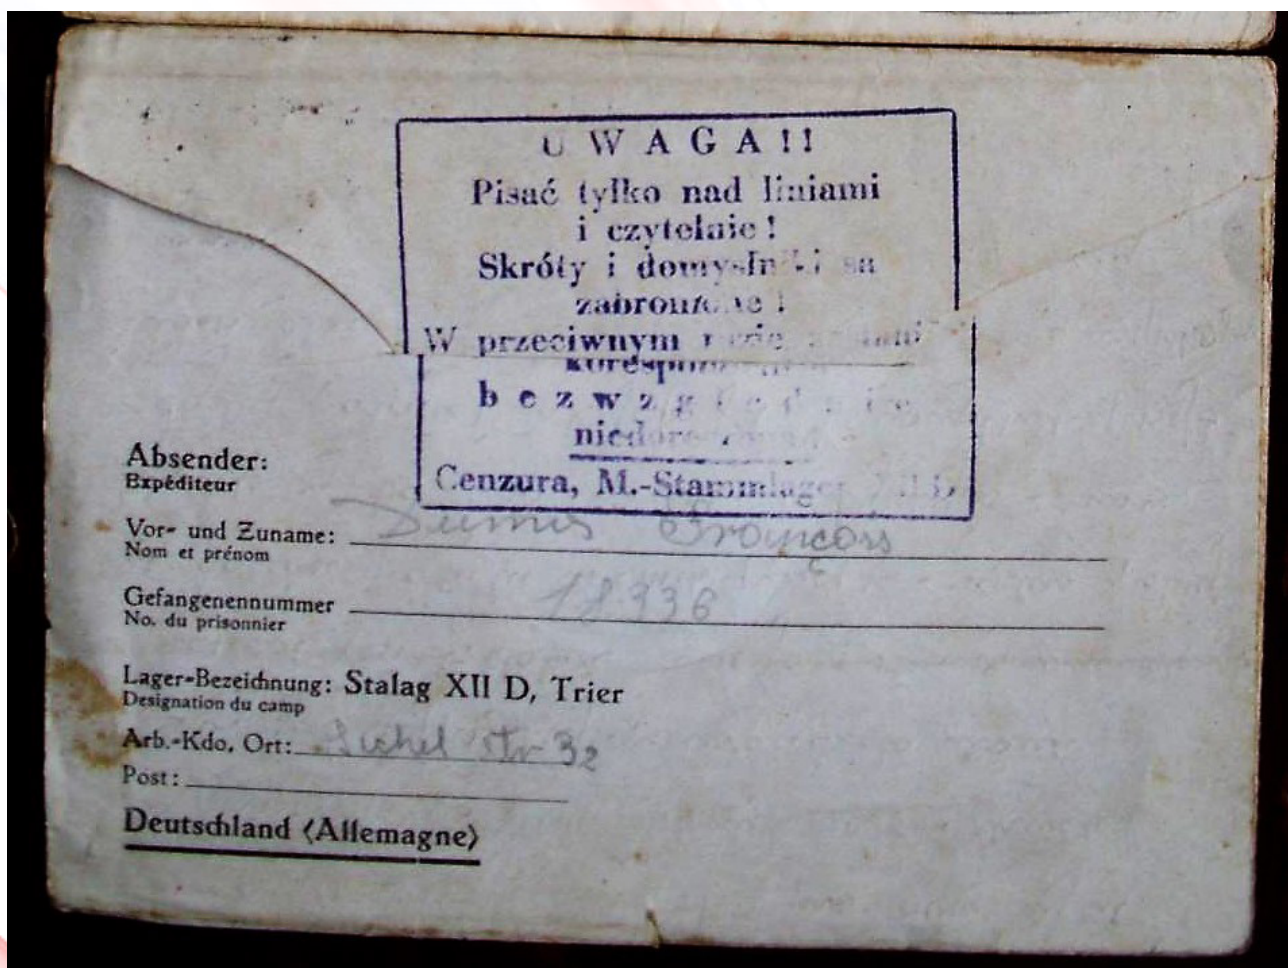 UWAGA!!
Pisać tylko nad liniami
i czytelnie!
Skróty i domyślniki są
zabronione!
W przeciwnym razie
b e z w z g l ę d n i e
Cenzura, M.-Stammlager XII D
Absender:
Expéditeur
Vor- und Zuname: François
Nom et prénom
Gefangenennummer 18936
No. du prisonnier
Lager-Bezeichnung: Stalag XII D, Trier
Designation du camp
Arb.-Kdo. Ort: str 32
Post:
Deutschland (Allemagne)